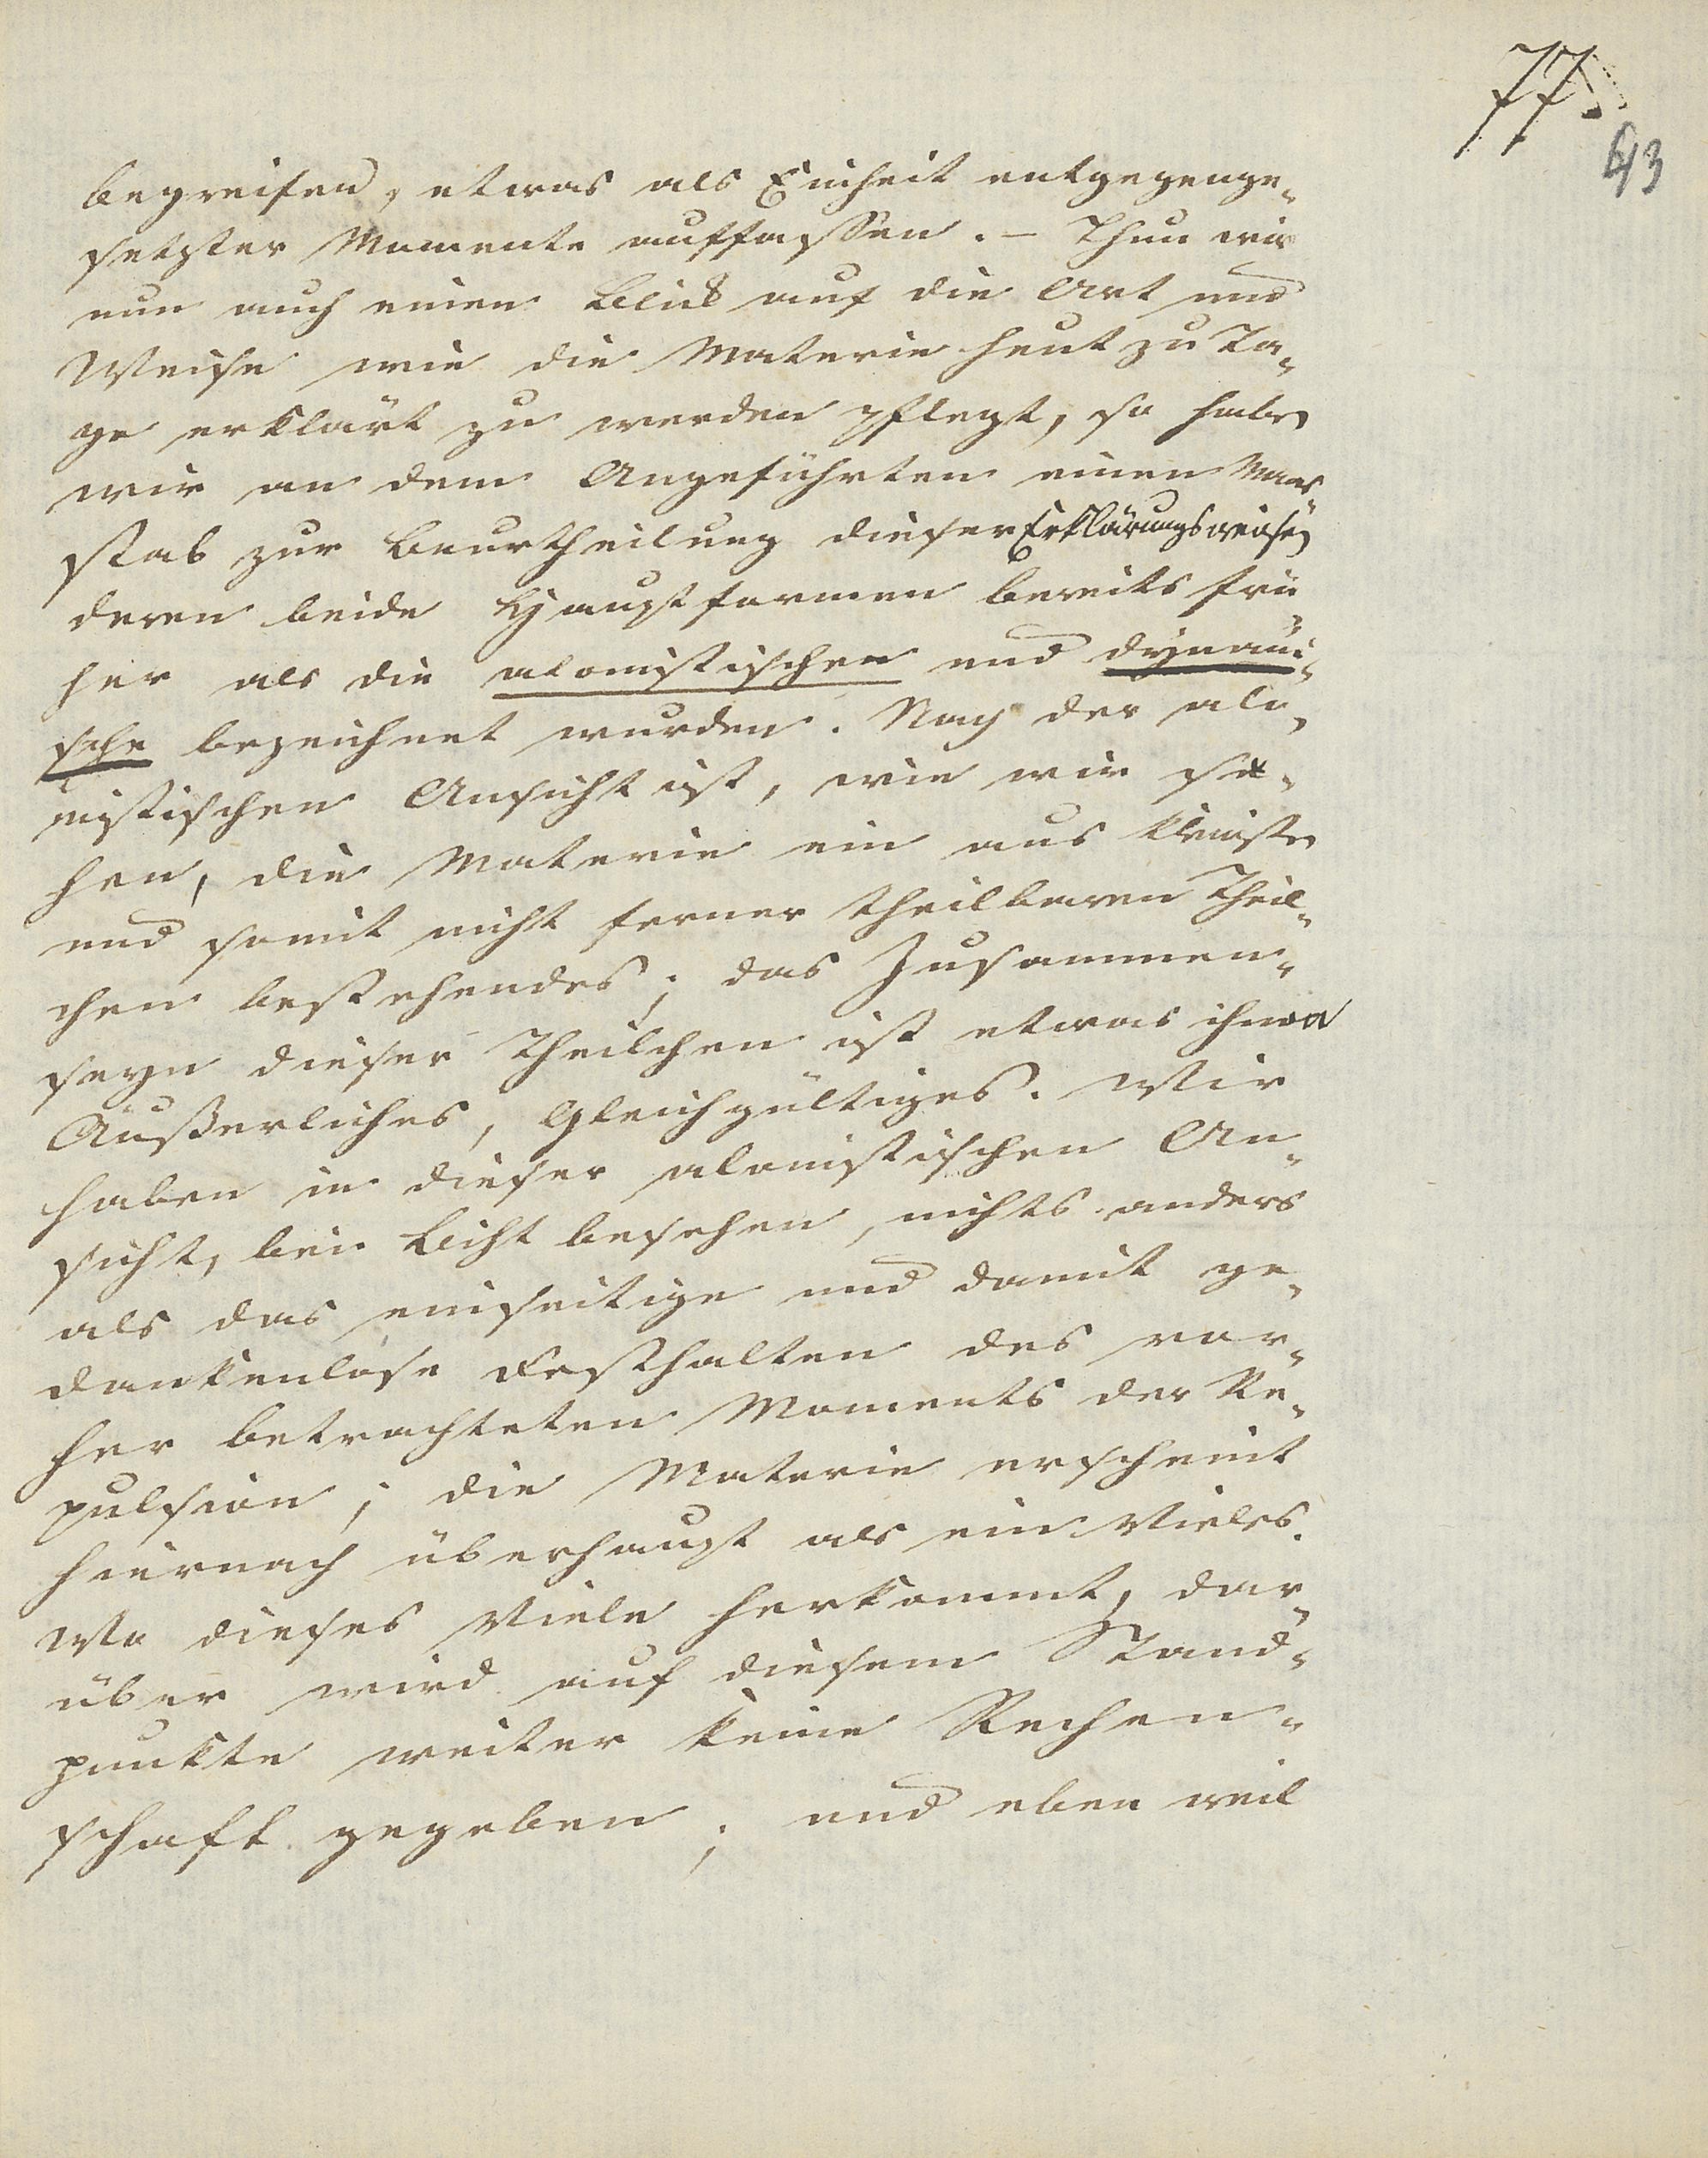 77.
43
begreifen, etwas als Einheit entgegenge-
setzter Momente auffassen. – Thun wir
nun auch einen Blick auf die Art und
Weise wie die Materie heut zu Ta-
ge erklärt zu werden pflegt, so haben
wir an dem Angeführten einen Maas-
stab zur Beurtheilung dieser Erklärungsweisen
deren beide Hauptformen bereits frü-
her als die atomistischen und dynami-
sche bezeichnet wurden. Nach der ato-
mistischen Ansicht ist, wie wir se-
hen, die Materie ein aus kleinsten
und somit nicht ferner theilbaren Theil-
chen bestehendes; das Zusammen-
seyn dieser Theilchen ist etwas ihnen
Äußerliches, Gleichgültiges. Wir
haben in dieser atomistischen An-
sicht, bei Licht besehen, nichts anders
als das einseitige und damit ge-
dankenlose Festhalten des vor-
her betrachteten Moments der Re-
pulsion; die Materie erscheint
hiernach überhaupt als ein Vieles.
Wo dieses Viele herkommt, dar-
über wird auf diesem Stand-
punkte weiter keine Rechen-
schaft gegeben; und eben weil